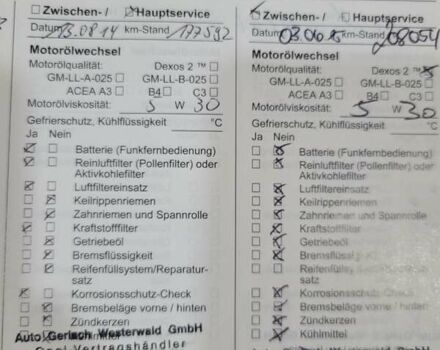 Zwischen- / Hauptservice
Datum 13.08.14 km-Stand 177592
Motorölwechsel
Motorölqualität: Dexos 2 ™
GM-LL-A-025 GM-LL-B-025
ACEA A3 B4 C3
Motorölviskosität: 5 W 30
Gefrierschutz, Kühlflüssigkeit °C
Ja Nein
Batterie (Funkfernbedienung)
Reinluftfilter (Pollenfilter) oder
Aktivkohlefilter
Luftfiltereinsatz
Keilrippenriemen
Zahnriemen und Spannrolle
Kraftstofffilter
Getriebeöl
Bremsflüssigkeit
Reifenfüllsystem/Reparatur-
satz
Korrosionsschutz-Check
Bremsbeläge vorne / hinten
Zündkerzen
Auto Gerlach Westerwald GmbH
Opel Vertragshändler
Zwischen- / Hauptservice
Datum km-Stand 208054
Motorölwechsel
Motorölqualität: Dexos 2 ™
GM-LL-A-025 GM-LL-B-025
ACEA A3 B4 C3
Motorölviskosität: 5 W 30
Gefrierschutz, Kühlflüssigkeit °C
Ja Nein
Batterie (Funkfernbedienung)
Reinluftfilter (Pollenfilter) oder
Aktivkohlefilter
Luftfiltereinsatz
Keilrippenriemen
Zahnriemen und Spannrolle
Kraftstofffilter
Getriebeöl
Bremsflüssigkeit
Reifenfüllsystem/Reparatur-
satz
Korrosionsschutz-Check
Bremsbeläge vorne / hinten
Zündkerzen
Kühlmittel